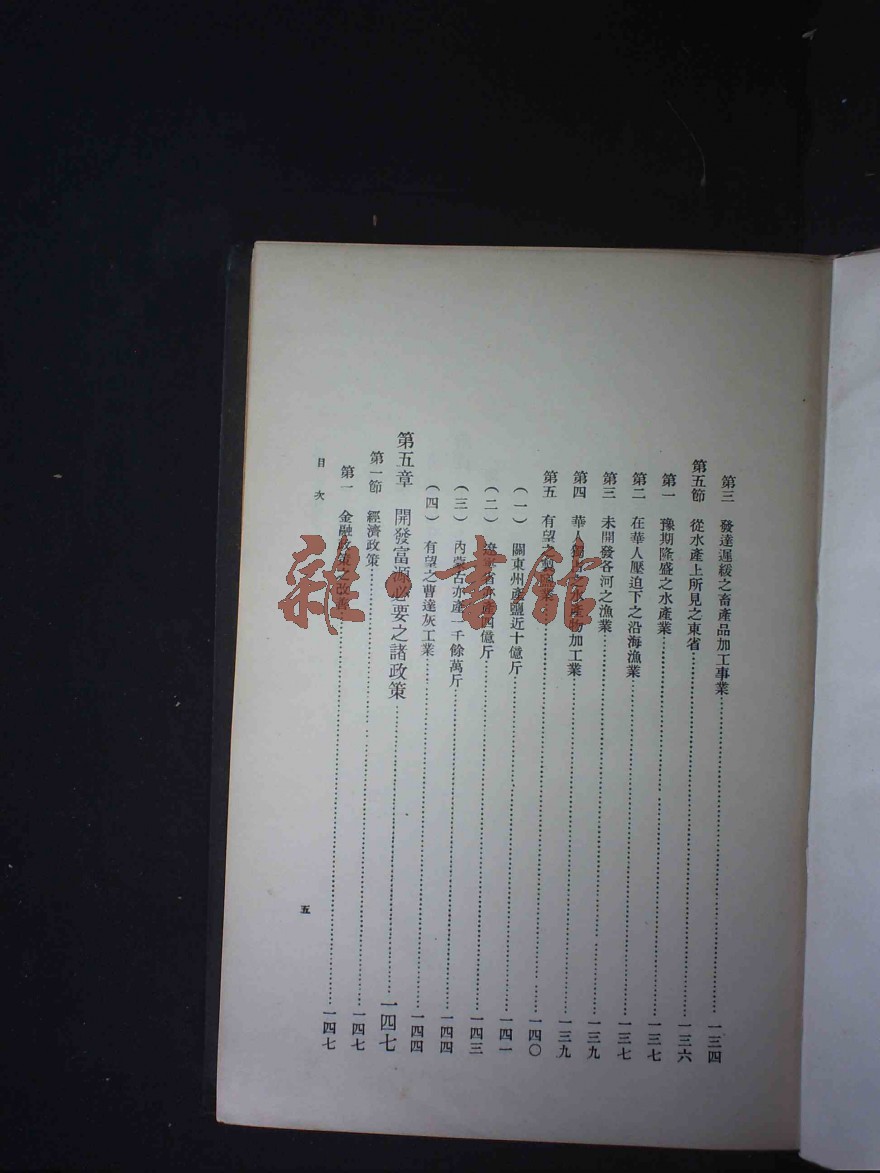 第三　發達遲緩之畜產品加工事業……一三四
第五節　從水產上所見之東省……一三六
第一　豫期隆盛之水產業……一三七
第二　在華人壓迫下之沿海漁業……一三七
第三　未開發各河之漁業……一三九
第四　華人獨占之水產物加工業……一三九
第五　有望之製鹽業……一四〇
（一）　關東州產鹽近十億斤……一四一
（二）　遼寧省亦產四億斤……一四三
（三）　內蒙古亦產一千餘萬斤……一四四
（四）　有望之曹達灰工業……一四四
第五章　開發富源必要之諸政策……一四七
第一節　經濟政策……一四七
第一　金融政策之改善……一四七
目次
五
雜·書館